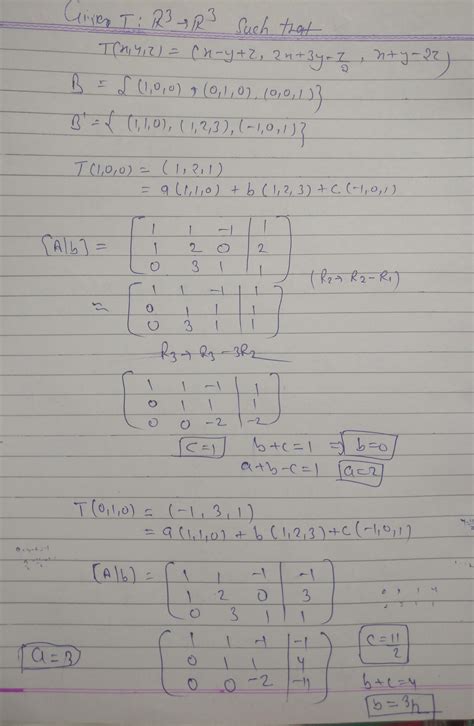 Given T: R³→R³ Such that
T(x,y,z) = (x-y+z, 2x+3y-z, x+y-2z)
B = {(1,0,0), (0,1,0), (0,0,1)}
B' = {(1,1,0), (1,2,3), (-1,0,1)}
T(1,0,0) = (1,2,1)
= a(1,1,0) + b(1,2,3) + c(-1,0,1)
[A|b] = [1 1 -1 | 1
1 2 0 | 2
0 3 1 | 1]
(R2→R2-R1)
= [1 1 -1 | 1
0 1 1 | 1
0 3 1 | 1]
R3→R3-3R2
[1 1 -1 | 1
0 1 1 | 1
0 0 -2 | -2]
c=1 b+c=1 ⇒ b=0
a+b-c=1 a=2
T(0,1,0) = (-1,3,1)
= a(1,1,0) + b(1,2,3) + c(-1,0,1)
[A|b) = [1 1 -1 | -1
1 2 0 | 3
0 3 1 | 1]
[1 1 -1 | -1
0 1 1 | 4
0 0 -2 | -11]
c=11/2
b+c=4
a=3